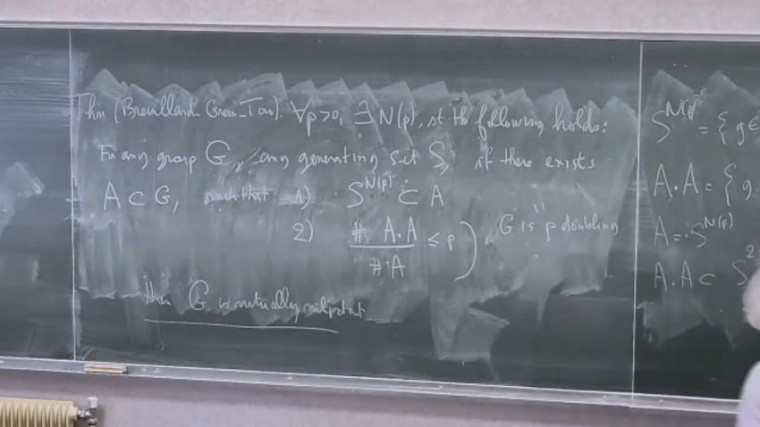 Thm (Breuillard Green_Tao). ∀p>0, ∃ N(p), st the following holds:
For any group G, any generating set S, if there exists
A ⊂ G, such that 1) S^N(p) ⊂ A
2) # A.A / # A ≤ p ) "G is p doubling"
then G is virtually nilpotent
S^N(p) = { g ∈
A.A = { g.
A = S^N(p)
A.A ⊂ S^2